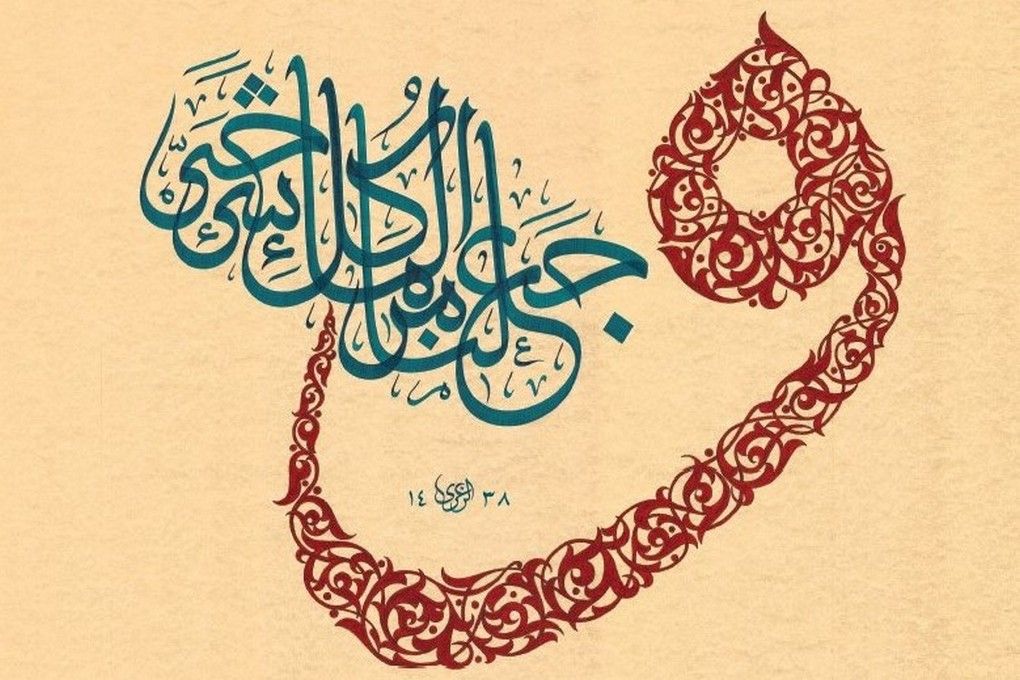 وَجَعَلْنَا مِنَ الْمَاءِ كُلَّ شَيْءٍ حَيٍّ
١٤ ٣٨